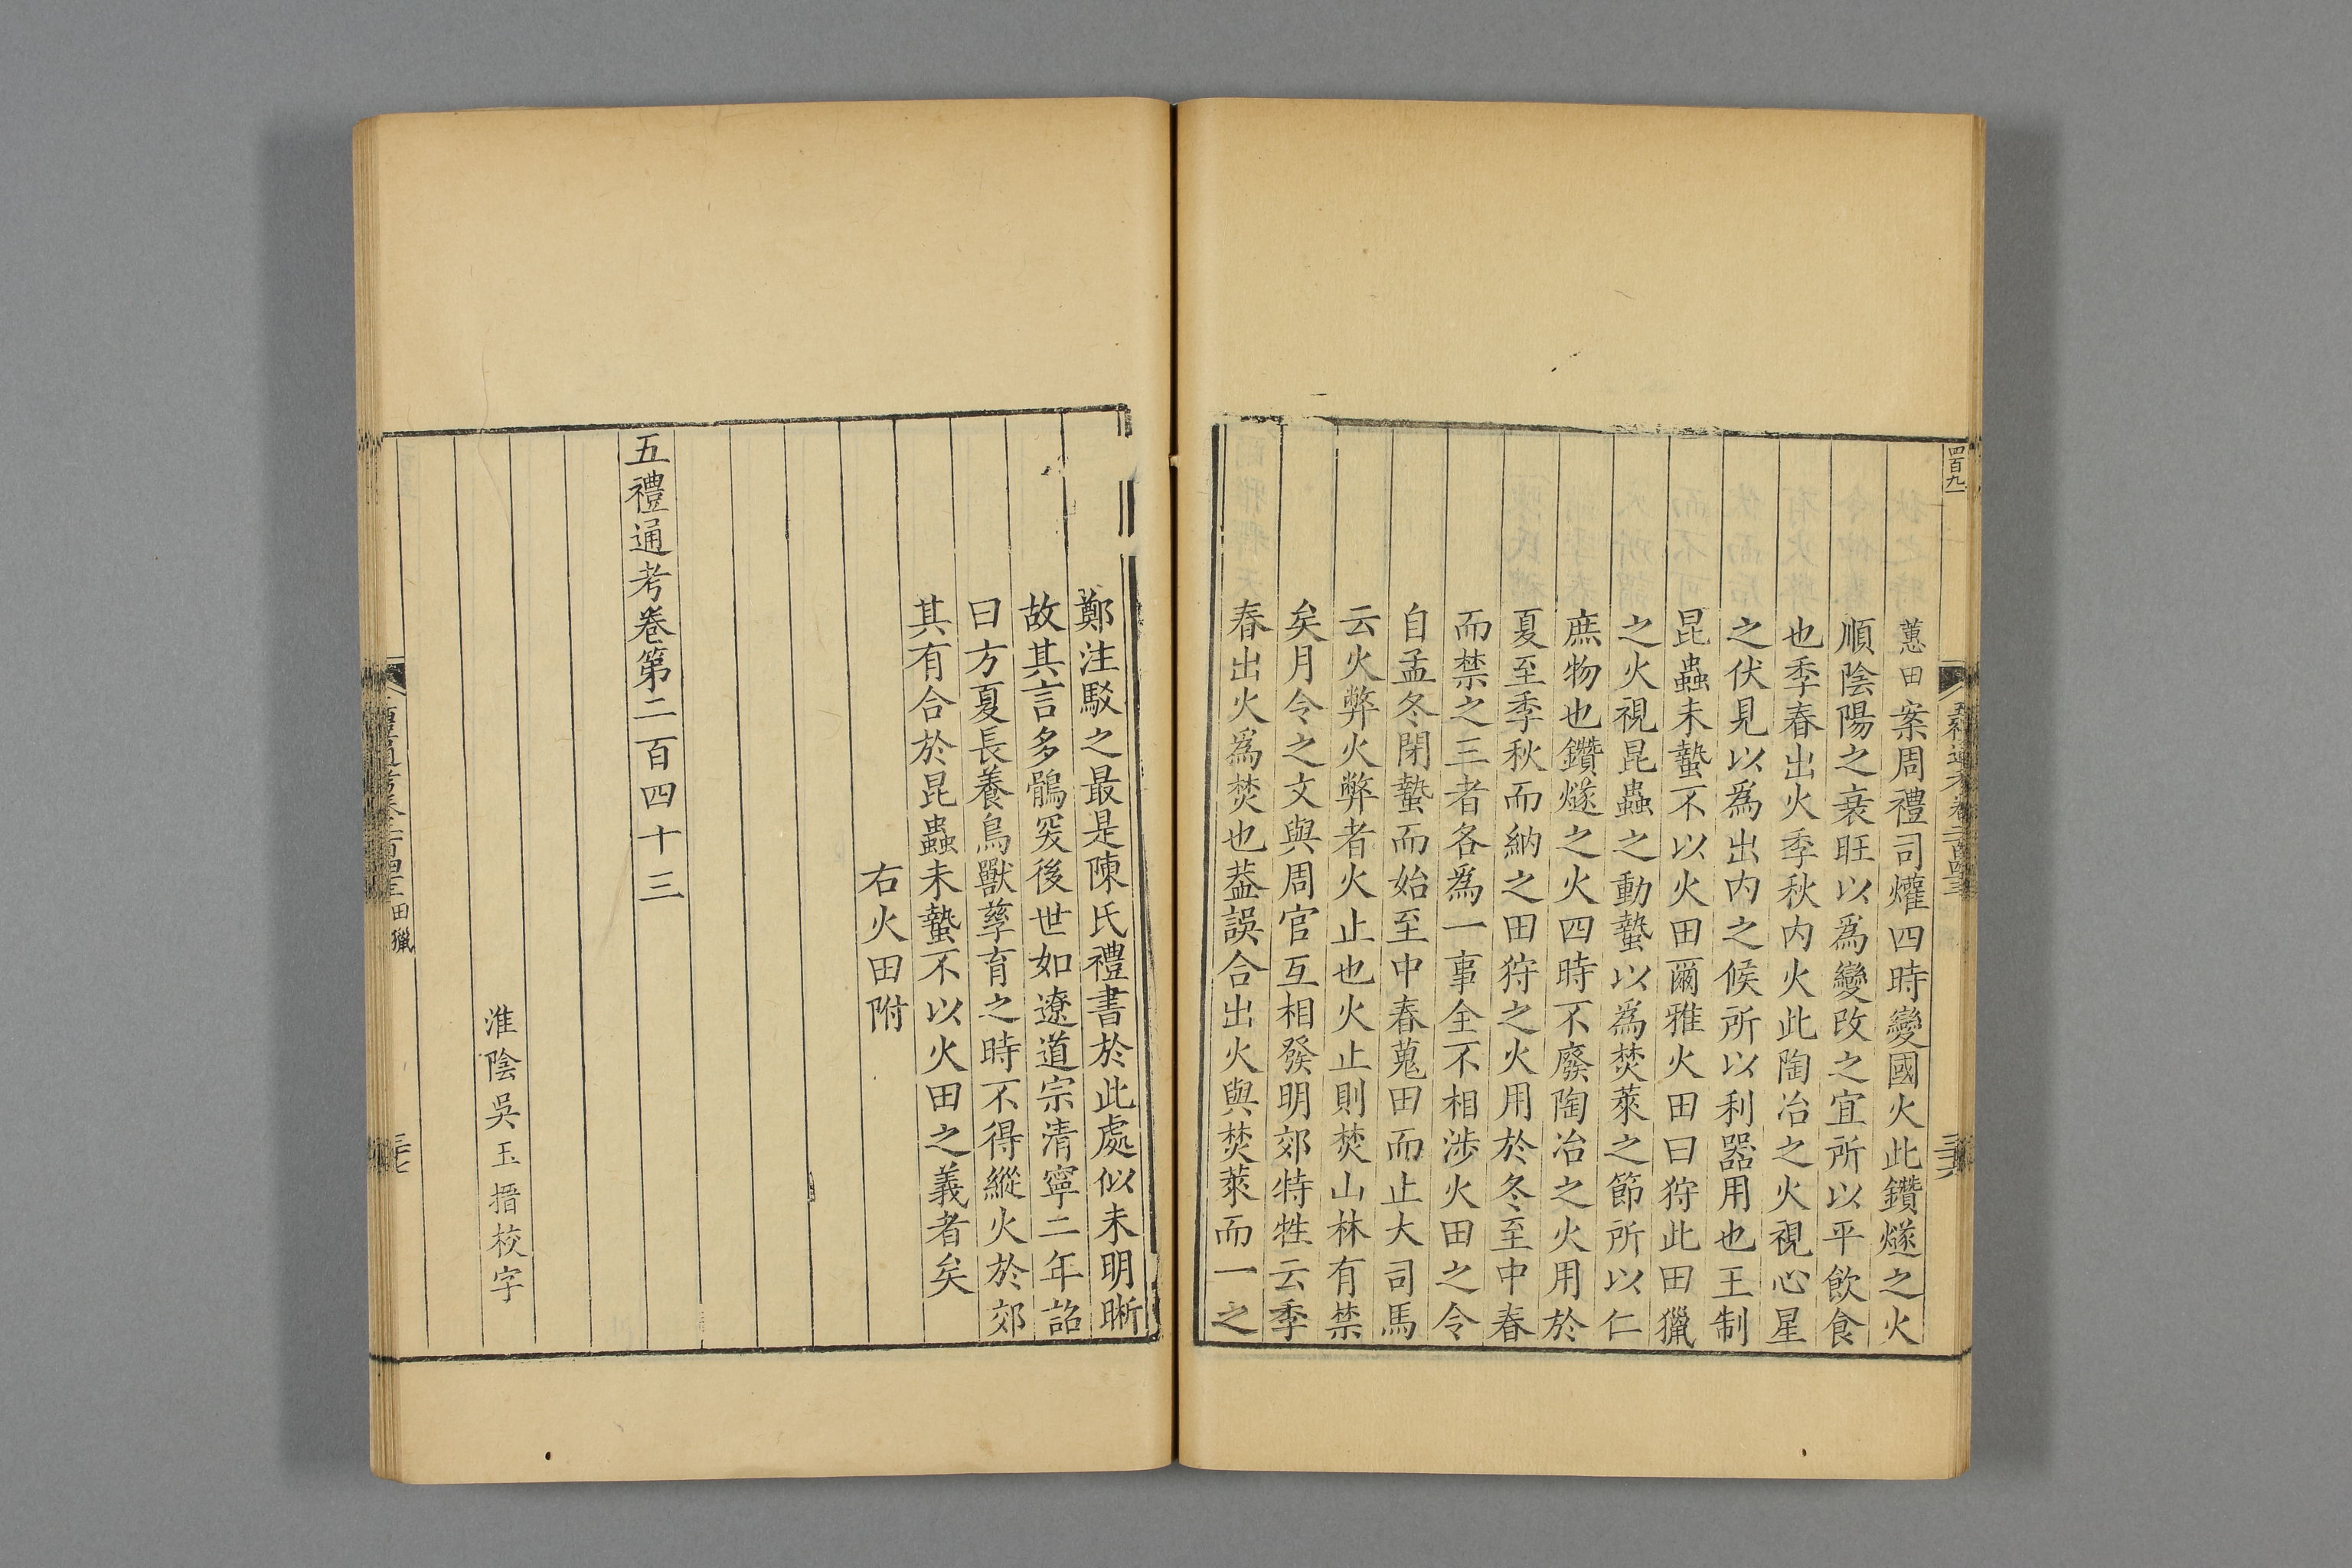 四百九一
蕙田案周禮司爟四時變國火此鑽燧之火
順陰陽之衰旺以爲變改之宜所以平飮食
也季春出火季秋内火此陶冶之火視心星
之伏見以爲出内之候所以利器用也王制
昆蟲未蟄不以火田爾雅火田曰狩此田獵
之火視昆蟲之動蟄以爲焚萊之節所以仁
庶物也鑽燧之火四時不廢陶冶之火用於
夏至季秋而納之田狩之火用於冬至中春
而禁之三者各爲一事全不相涉火田之令
自孟冬閉蟄而始至中春蒐田而止大司馬
云火弊火弊者火止也火止則焚山林有禁
矣月令之文與周官互相發明郊特牲云季
春出火爲焚也葢誤合出火與焚萊而一之
鄭注駁之最是陳氏禮書於此處似未明晣
故其言多鶻突後世如遼道宗清寧二年詔
曰方夏長養鳥獸孳育之時不得縱火於郊
其有合於昆蟲未蟄不以火田之義者矣
右火田附
五禮通考卷第二百四十三
淮陰吳玉搢校字
田獵